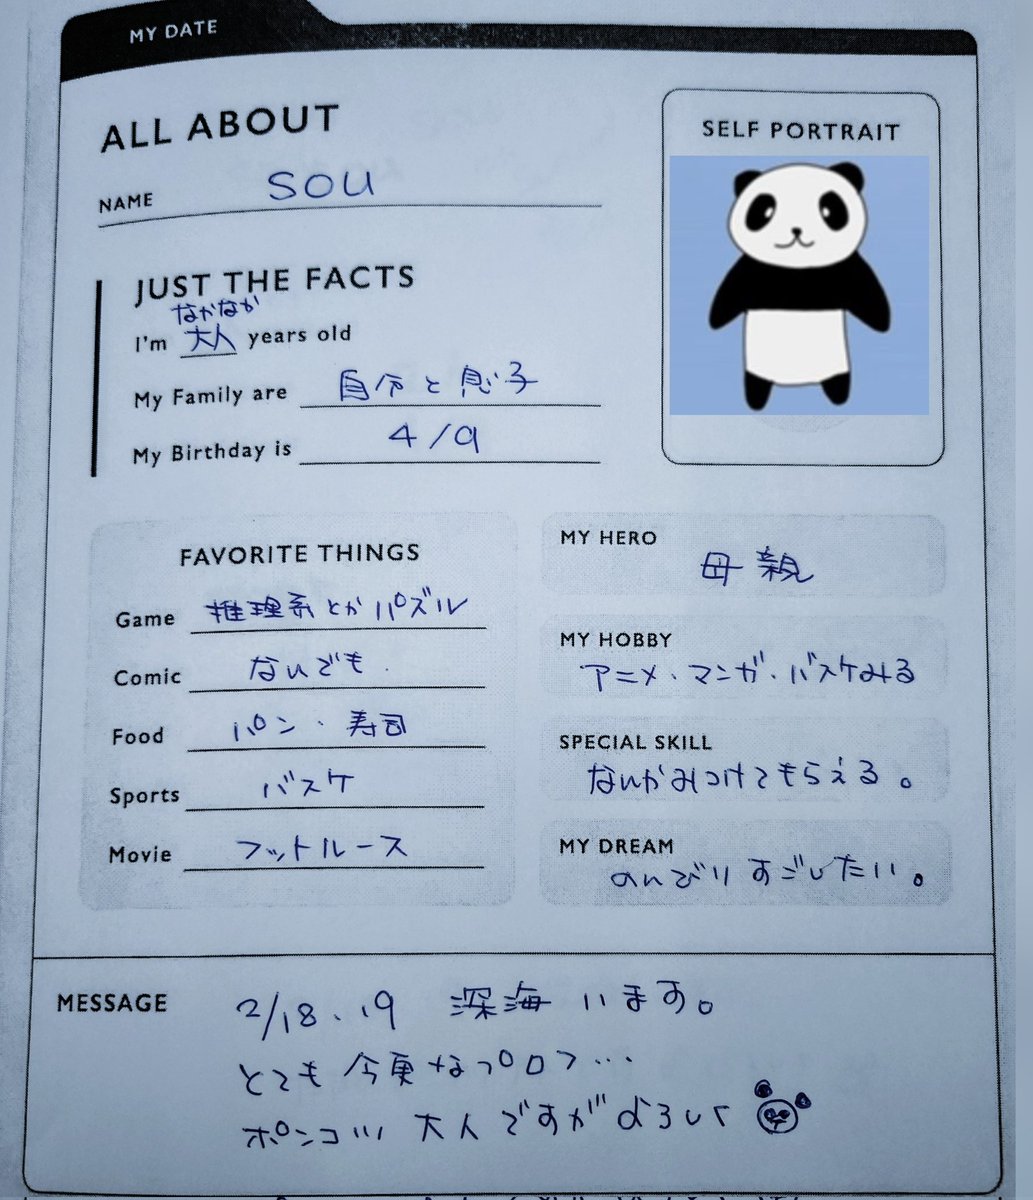 MY DATE
ALL ABOUT
NAME SOU
SELF PORTRAIT
JUST THE FACTS
なかなか
I'm 大人 years old
My Family are 自分と息子
My Birthday is 4/9
FAVORITE THINGS
Game 推理系とかパズル
Comic なんでも
Food パン・寿司
Sports バスケ
Movie フットルース
MY HERO
母親
MY HOBBY
アニメ・マンガ・バスケみる
SPECIAL SKILL
なんかみつけてもらえる。
MY DREAM
のんびりすごしたい。
MESSAGE 2/18、19 深海います。
とても今更なプロフ…
ポンコツ大人ですがよろしく